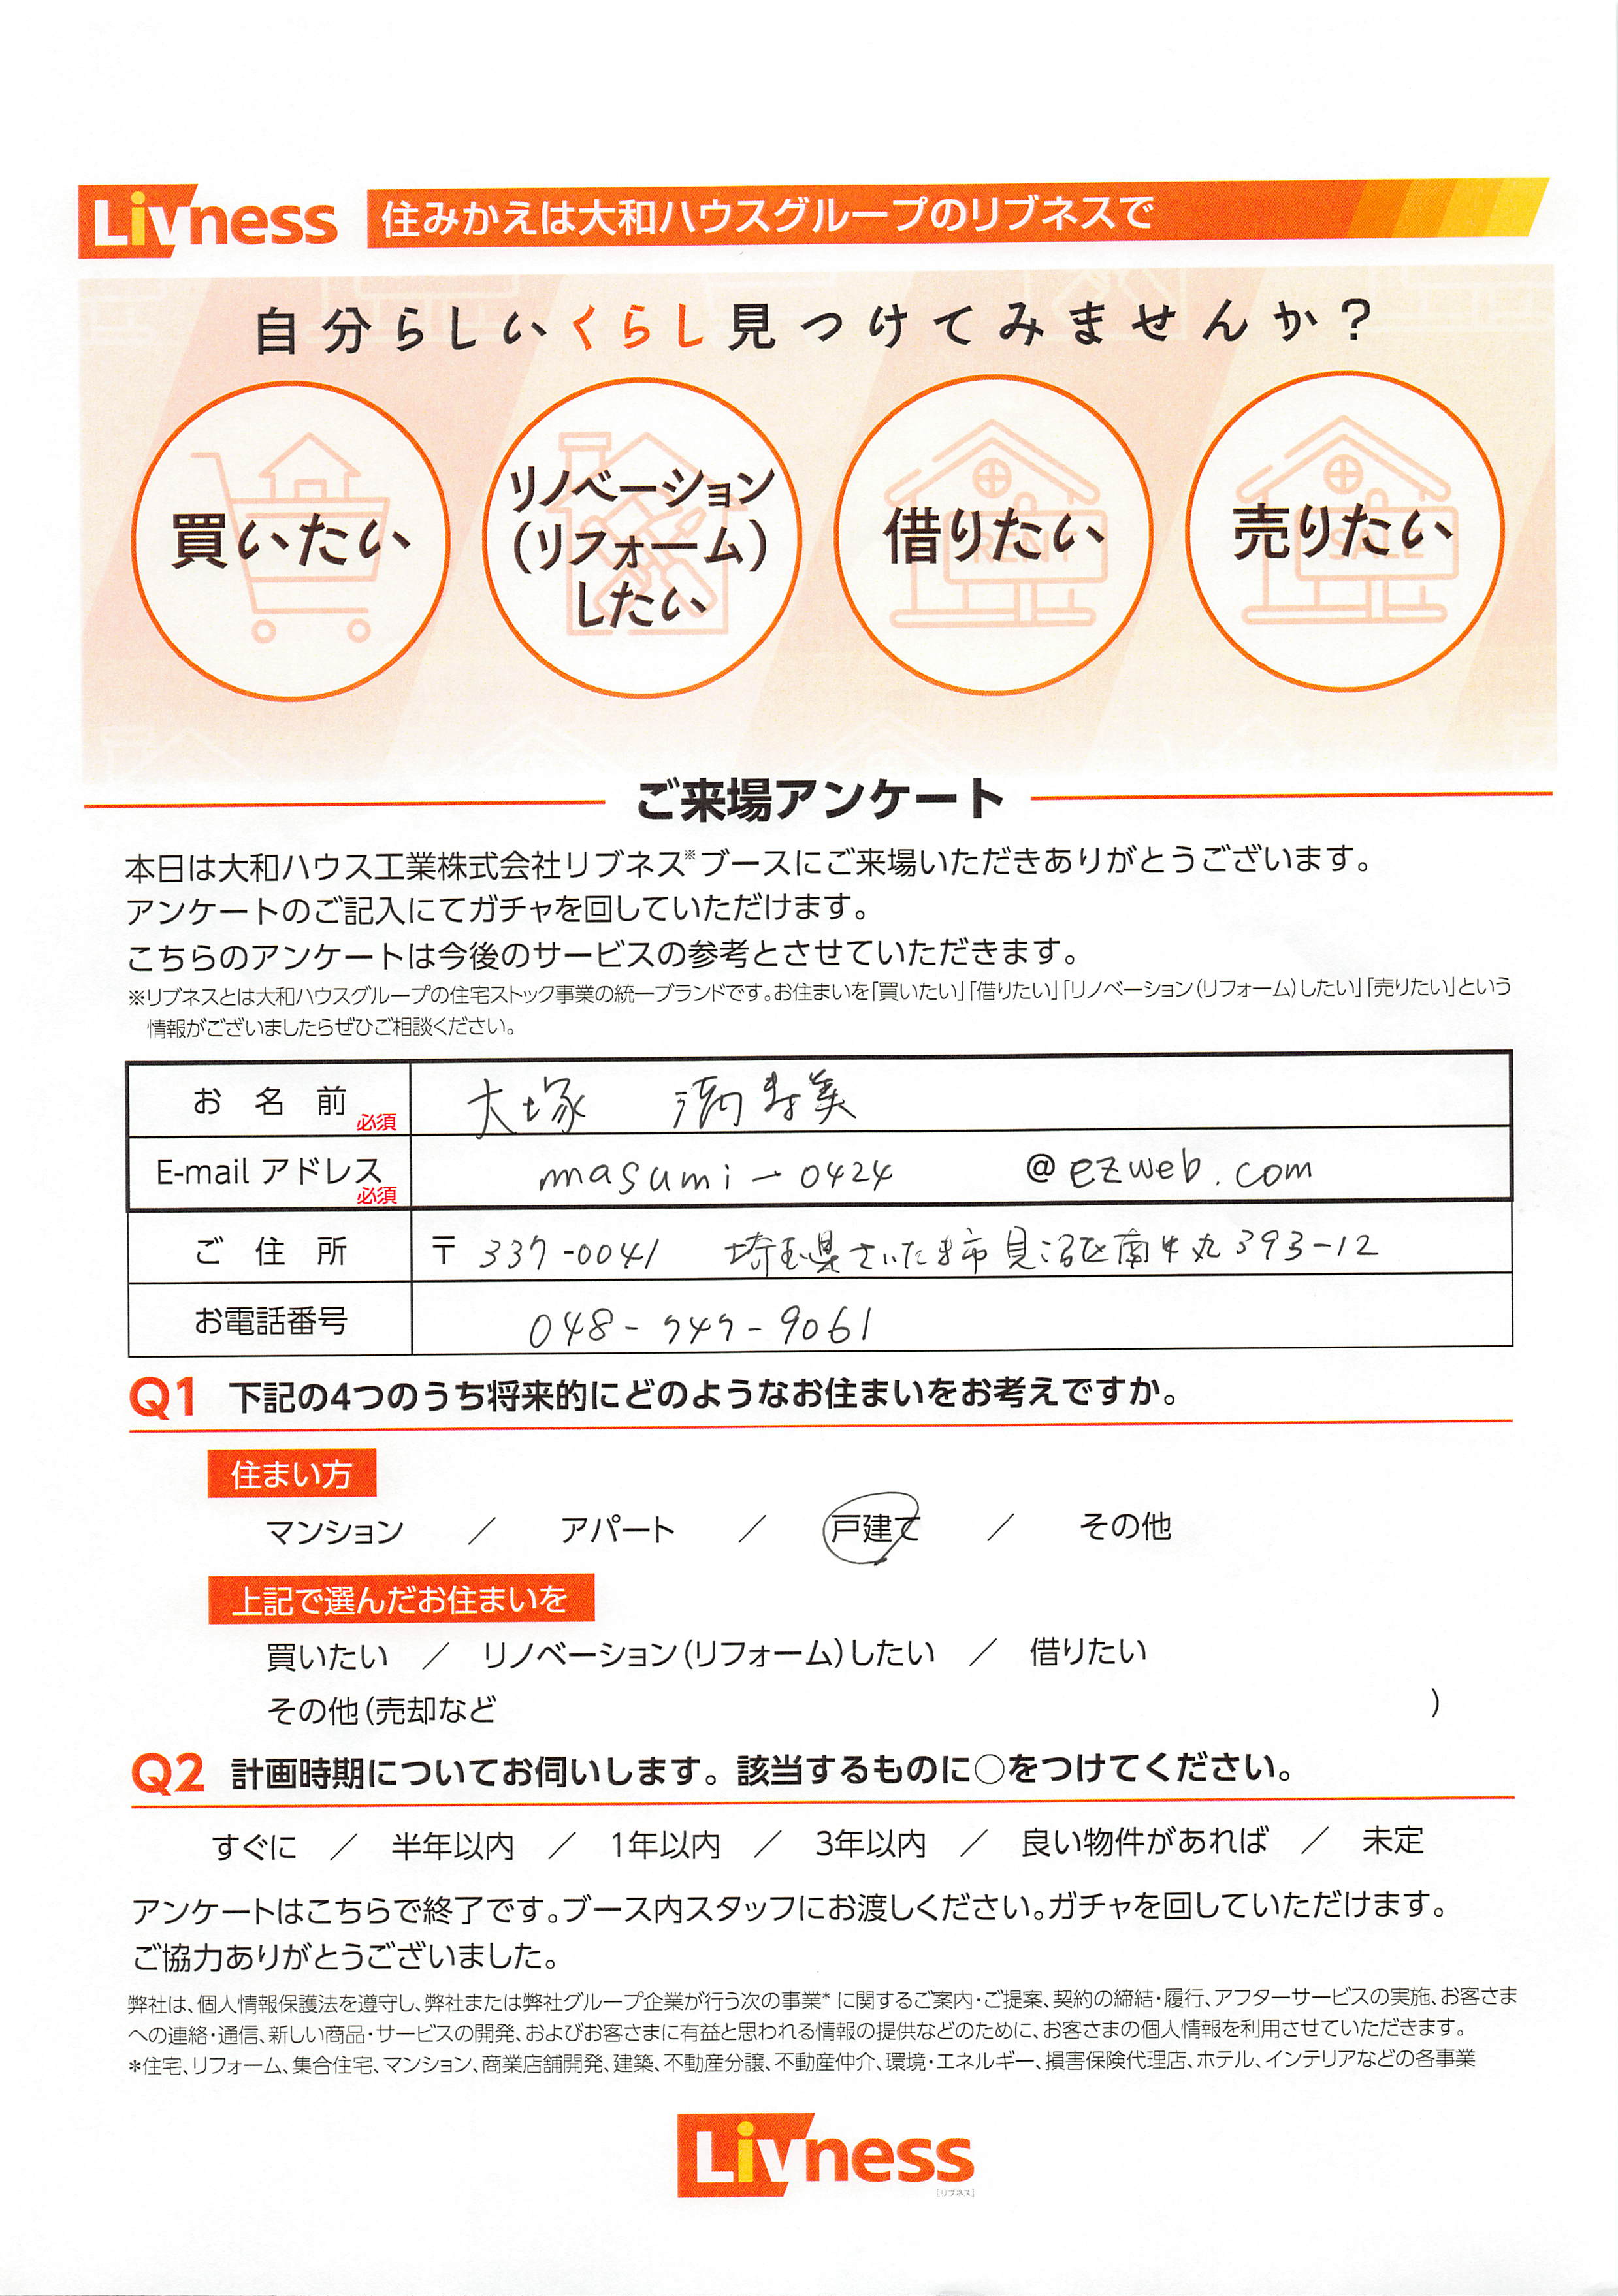 Livness 住みかえは大和ハウスグループのリブネスで
自分らしいくらし見つけてみませんか？
買いたい
リノベーション
(リフォーム)
したい
RENT
借りたい
SALE
売りたい
ご来場アンケート
本日は大和ハウス工業株式会社リブネス※ブースにご来場いただきありがとうございます。
アンケートのご記入にてガチャを回していただけます。
こちらのアンケートは今後のサービスの参考とさせていただきます。
※リブネスとは大和ハウスグループの住宅ストック事業の統一ブランドです。お住まいを「買いたい」「借りたい」「リノベーション(リフォーム)したい」「売りたい」という
情報がございましたらぜひご相談ください。
お名前 必須 大塚 満寿美
E-mail アドレス 必須 masumi-0424 @ezweb.com
ご住所 〒337-0041 埼玉県さいたま市見沼区南中丸393-12
お電話番号 048-747-9061
Q1 下記の4つのうち将来的にどのようなお住まいをお考えですか。
住まい方
マンション ／ アパート ／ 戸建て ／ その他
上記で選んだお住まいを
買いたい ／ リノベーション(リフォーム)したい ／ 借りたい
その他(売却など )
Q2 計画時期についてお伺いします。該当するものに○をつけてください。
すぐに ／ 半年以内 ／ 1年以内 ／ 3年以内 ／ 良い物件があれば ／ 未定
アンケートはこちらで終了です。ブース内スタッフにお渡しください。ガチャを回していただけます。
ご協力ありがとうございました。
弊社は、個人情報保護法を遵守し、弊社または弊社グループ企業が行う次の事業*に関するご案内・ご提案、契約の締結・履行、アフターサービスの実施、お客さま
への連絡・通信、新しい商品・サービスの開発、およびお客さまに有益と思われる情報の提供などのために、お客さまの個人情報を利用させていただきます。
*住宅、リフォーム、集合住宅、マンション、商業店舗開発、建築、不動産分譲、不動産仲介、環境・エネルギー、損害保険代理店、ホテル、インテリアなどの各事業
Livness
[リブネス]